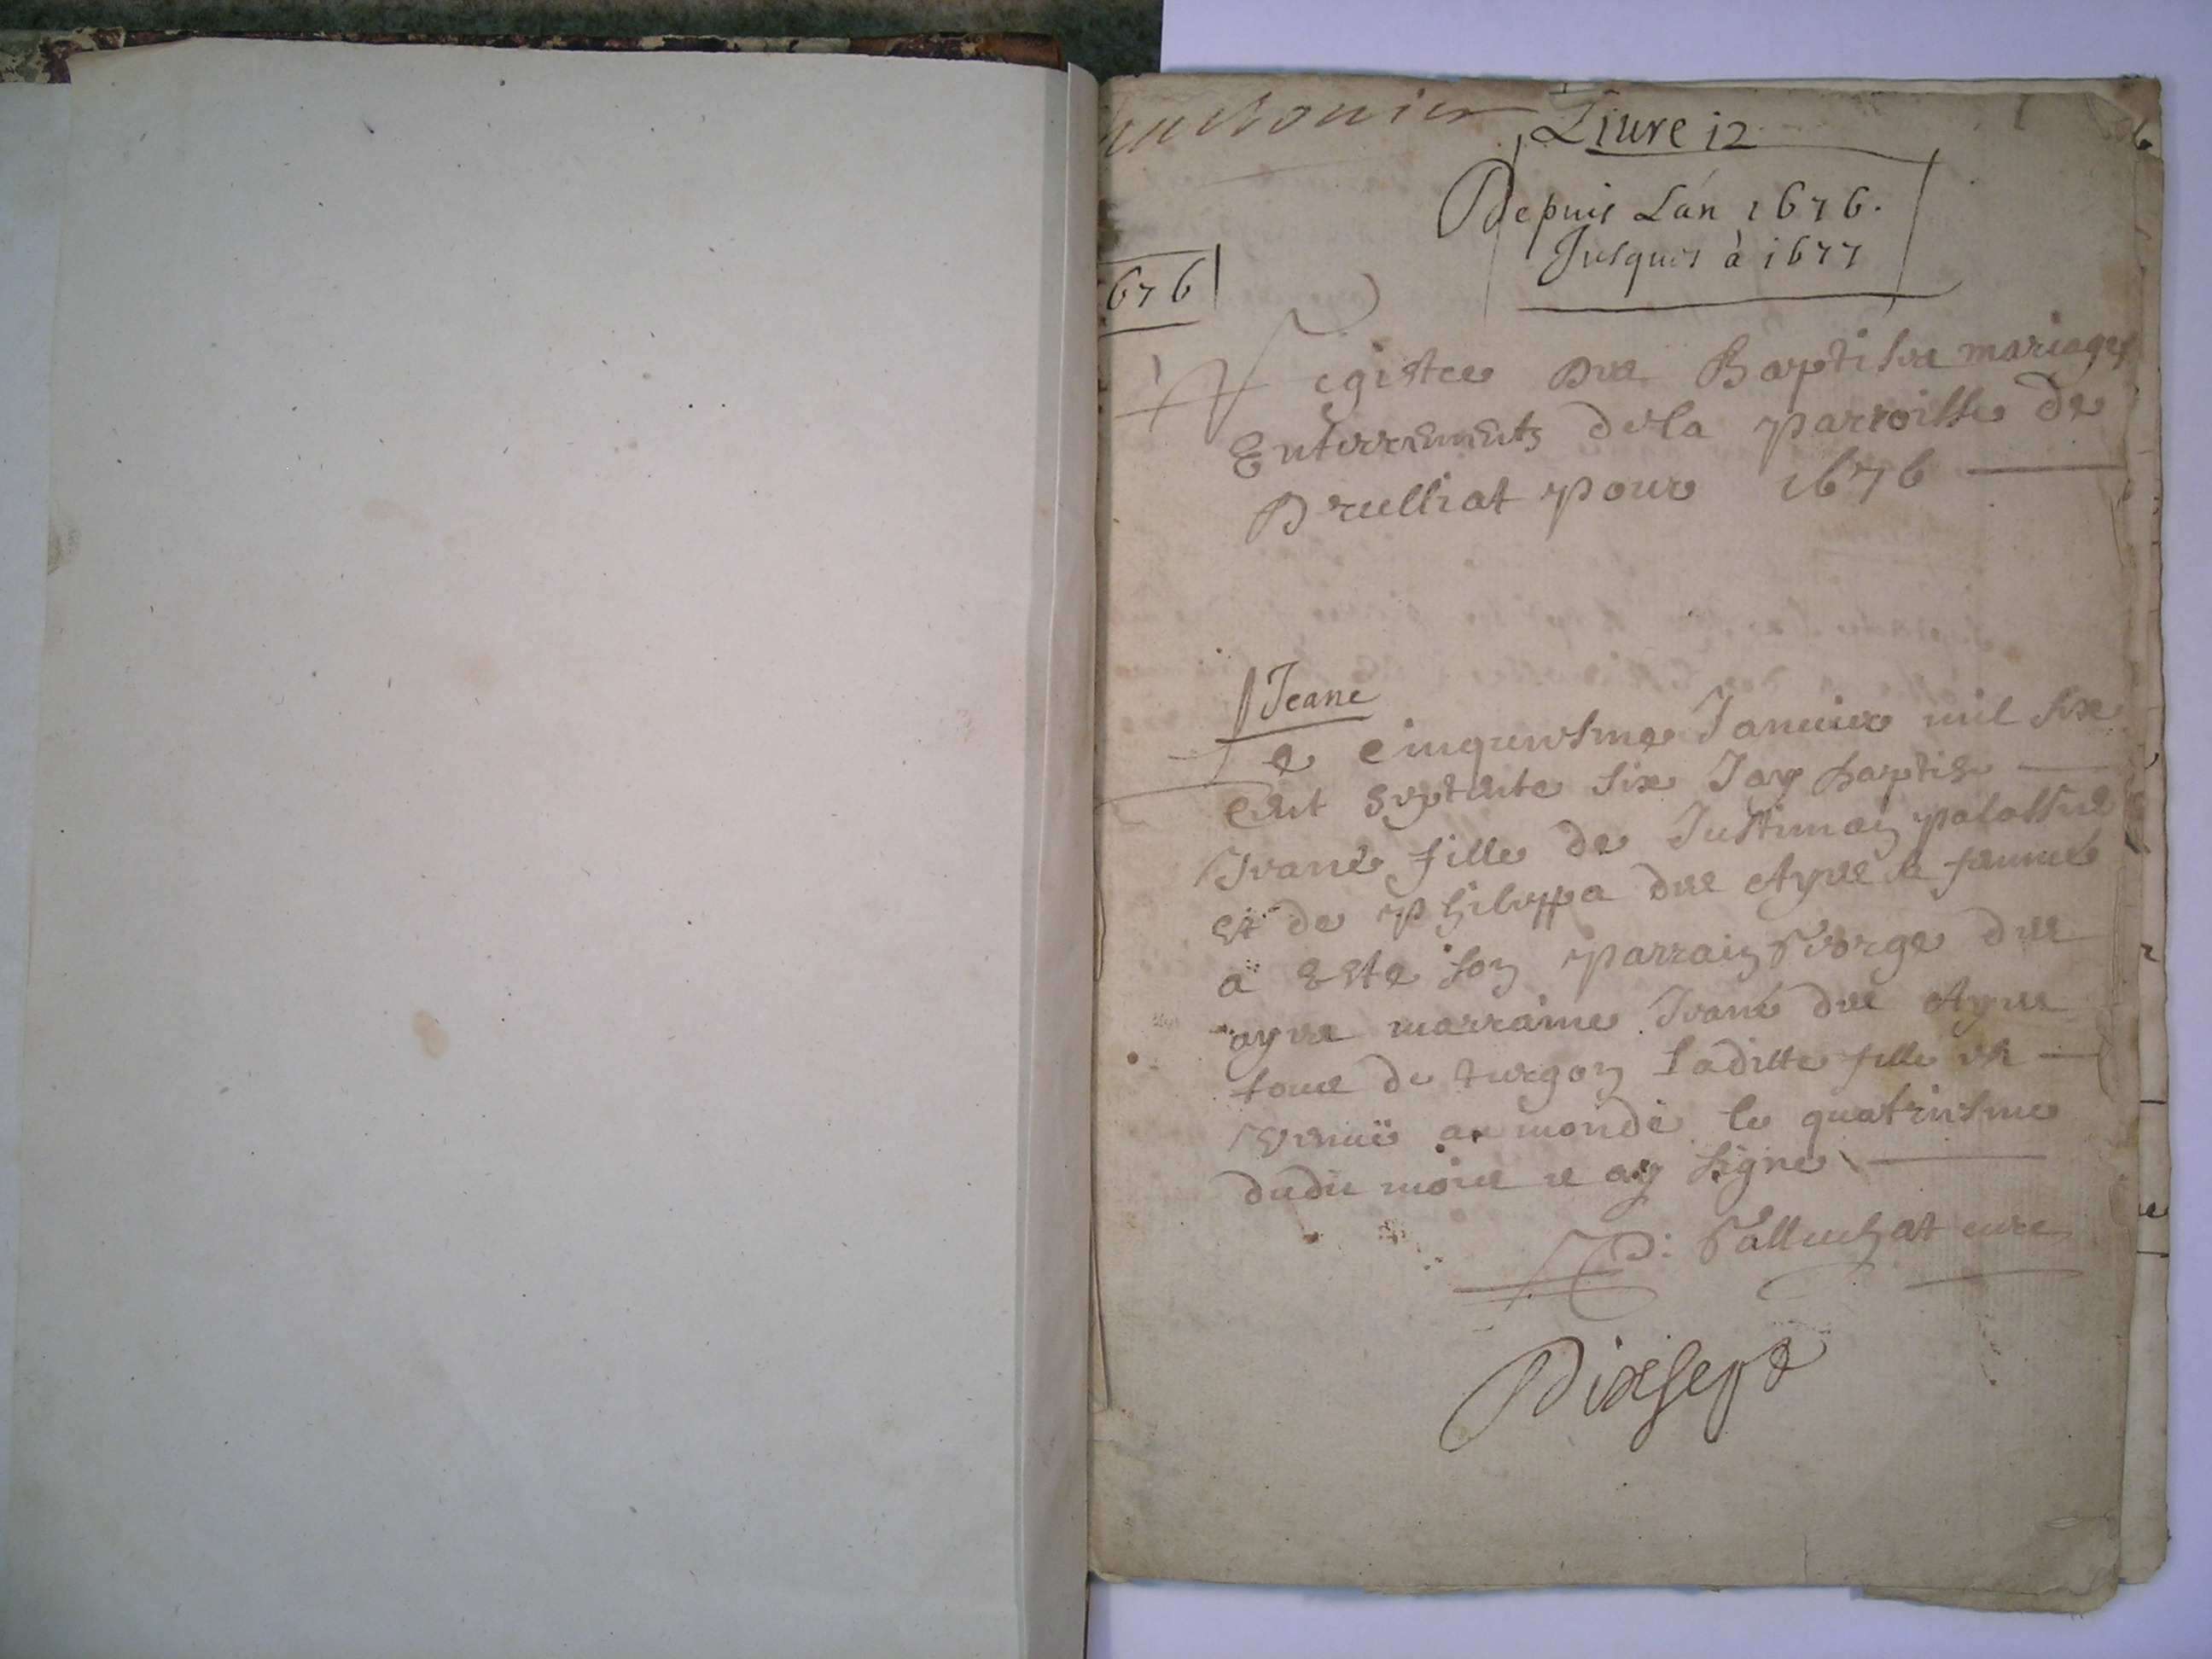 Liure 12
Depuis L'an 1676.
Jusques à 1677
676
Registre des Baptisez mariages
Enterrements de la parroisse de
Drulliat pour 1676
Jeane
Le cinquiesme Januier mil six
cent septente six Jay baptisé
Jeane fille de
et de Philippa des Ayes sa femme
a este son parrain George des
ayes marraine Jeane des Ayes
tous de turgon laditte fille est
venuë au monde le quatriesme
dudit mois et ay signé
curé
Dixsept